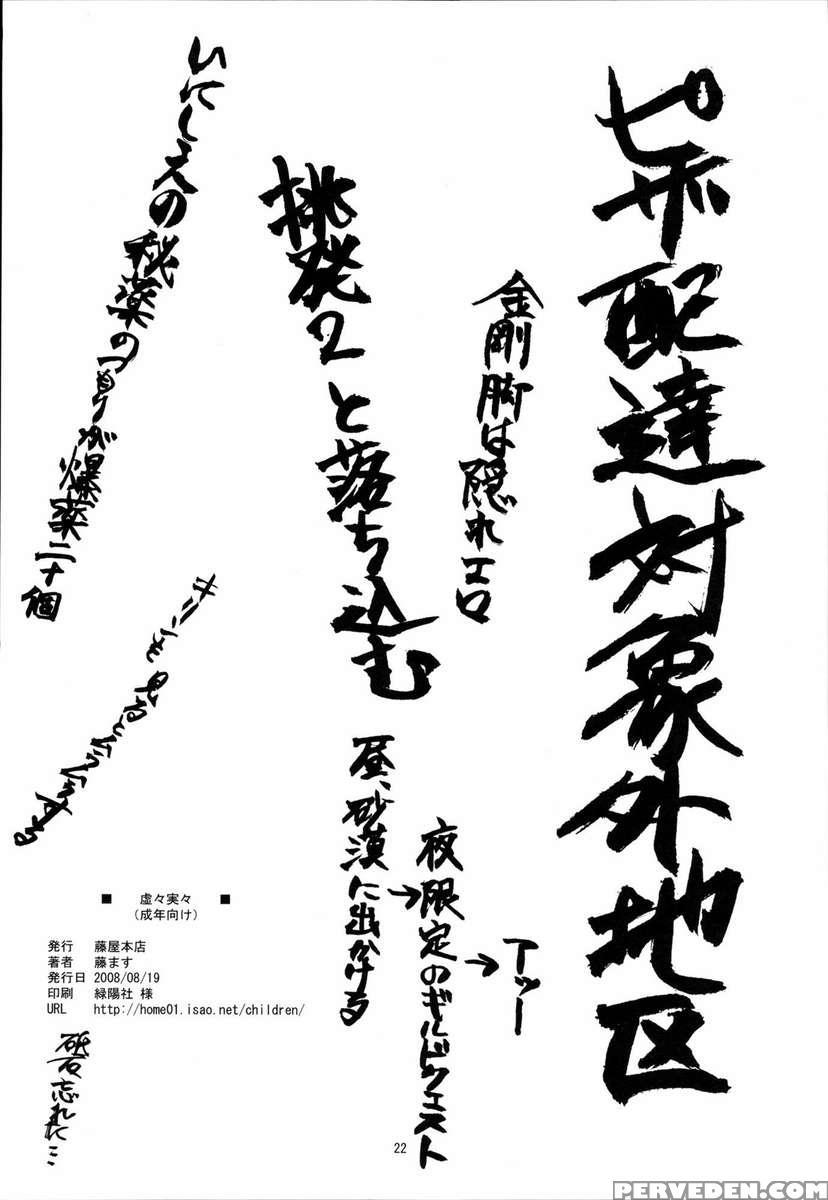 ピザ配達対象外地区
金剛脚は隠れエロ
挑発2と落ち込む
いにしえの秘薬のつもりが爆薬二十個
キリンを見るとムラムラする
昼、砂漠に出かける
→夜限定のギルドクエスト
→アッー
■ 虚々実々 ■
(成年向け)
発行 藤屋本店
著者 藤ます
発行日 2008/08/19
印刷 緑陽社 様
URL http://home01.isao.net/children/
砥石忘れた…
22
PERVEDEN.COM